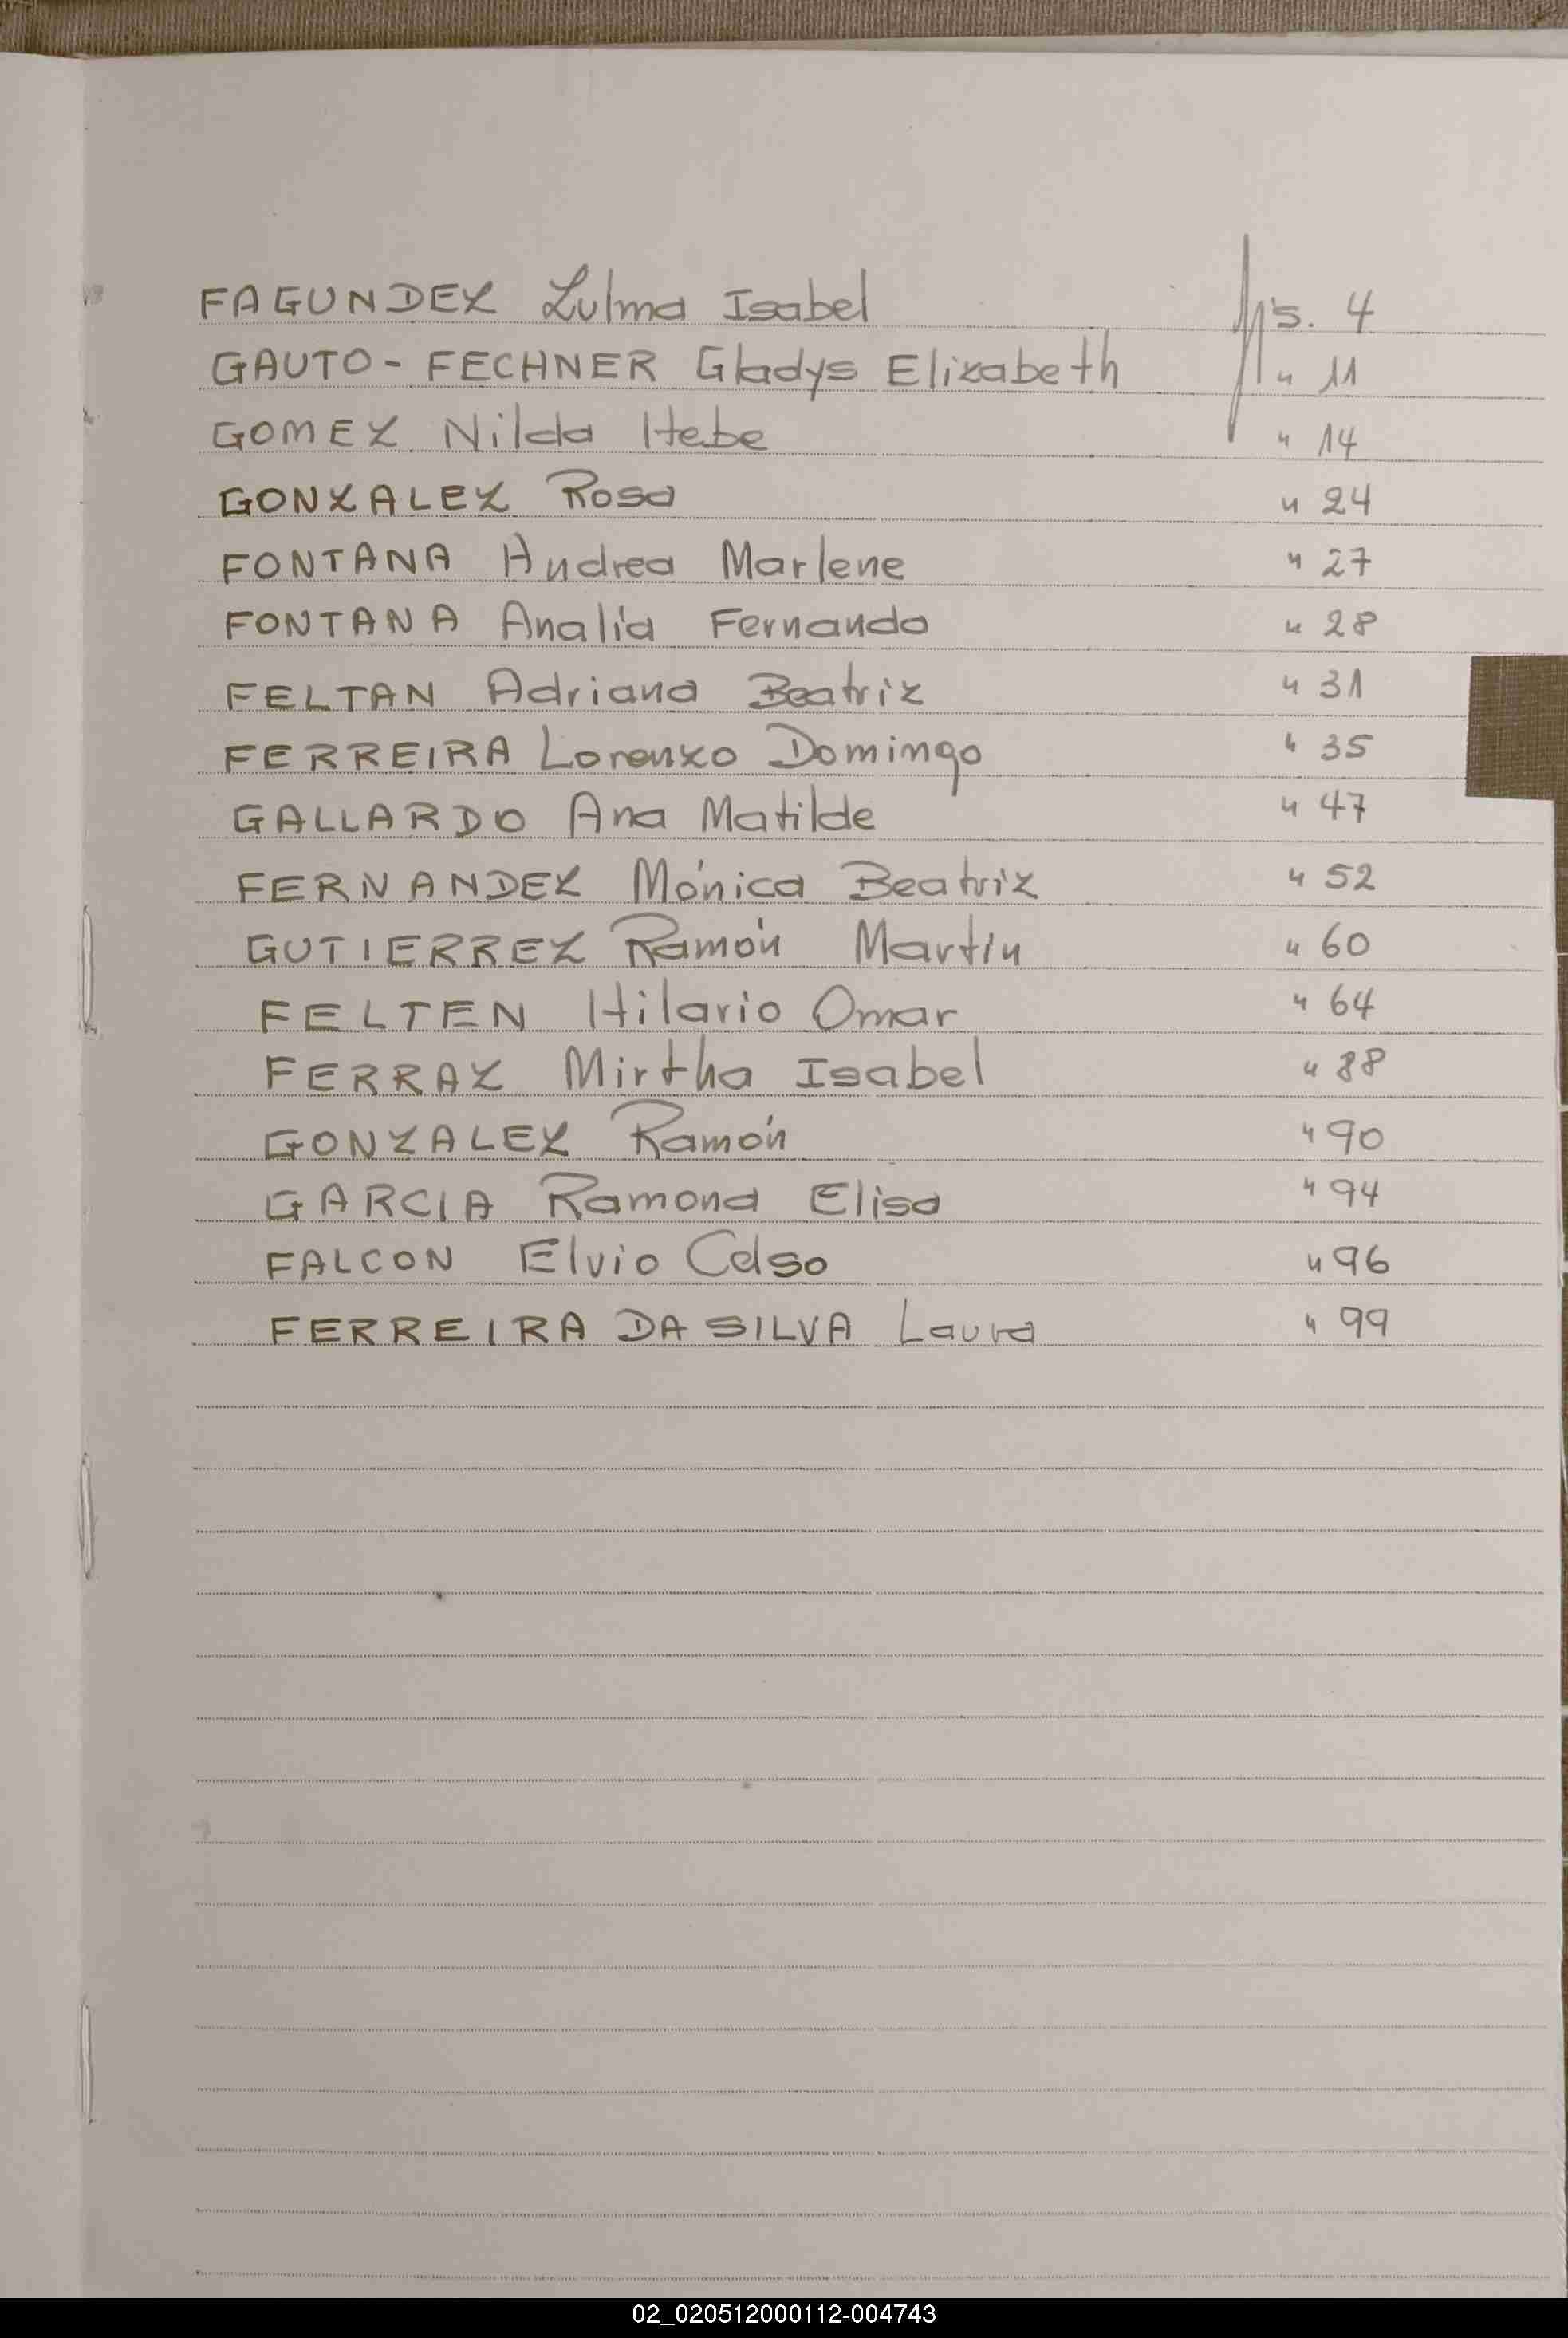 FAGUNDEZ Zulma Isabel fjs. 4
GAUTO - FECHNER Gladys Elizabeth " 11
GOMEZ Nilda Hebe " 14
GONZALEZ Rosa " 24
FONTANA Andrea Marlene " 27
FONTANA Analía Fernanda " 28
FELTAN Adriana Beatriz " 31
FERREIRA Lorenzo Domingo " 35
GALLARDO Ana Matilde " 47
FERNANDEZ Mónica Beatriz " 52
GUTIERREZ Ramón Martin " 60
FELTEN Hilario Omar " 64
FERRAZ Mirtha Isabel " 88
GONZALEZ Ramón " 90
GARCIA Ramona Elisa " 94
FALCON Elvio Celso " 96
FERREIRA DA SILVA Laura " 99
02_020512000112-004743